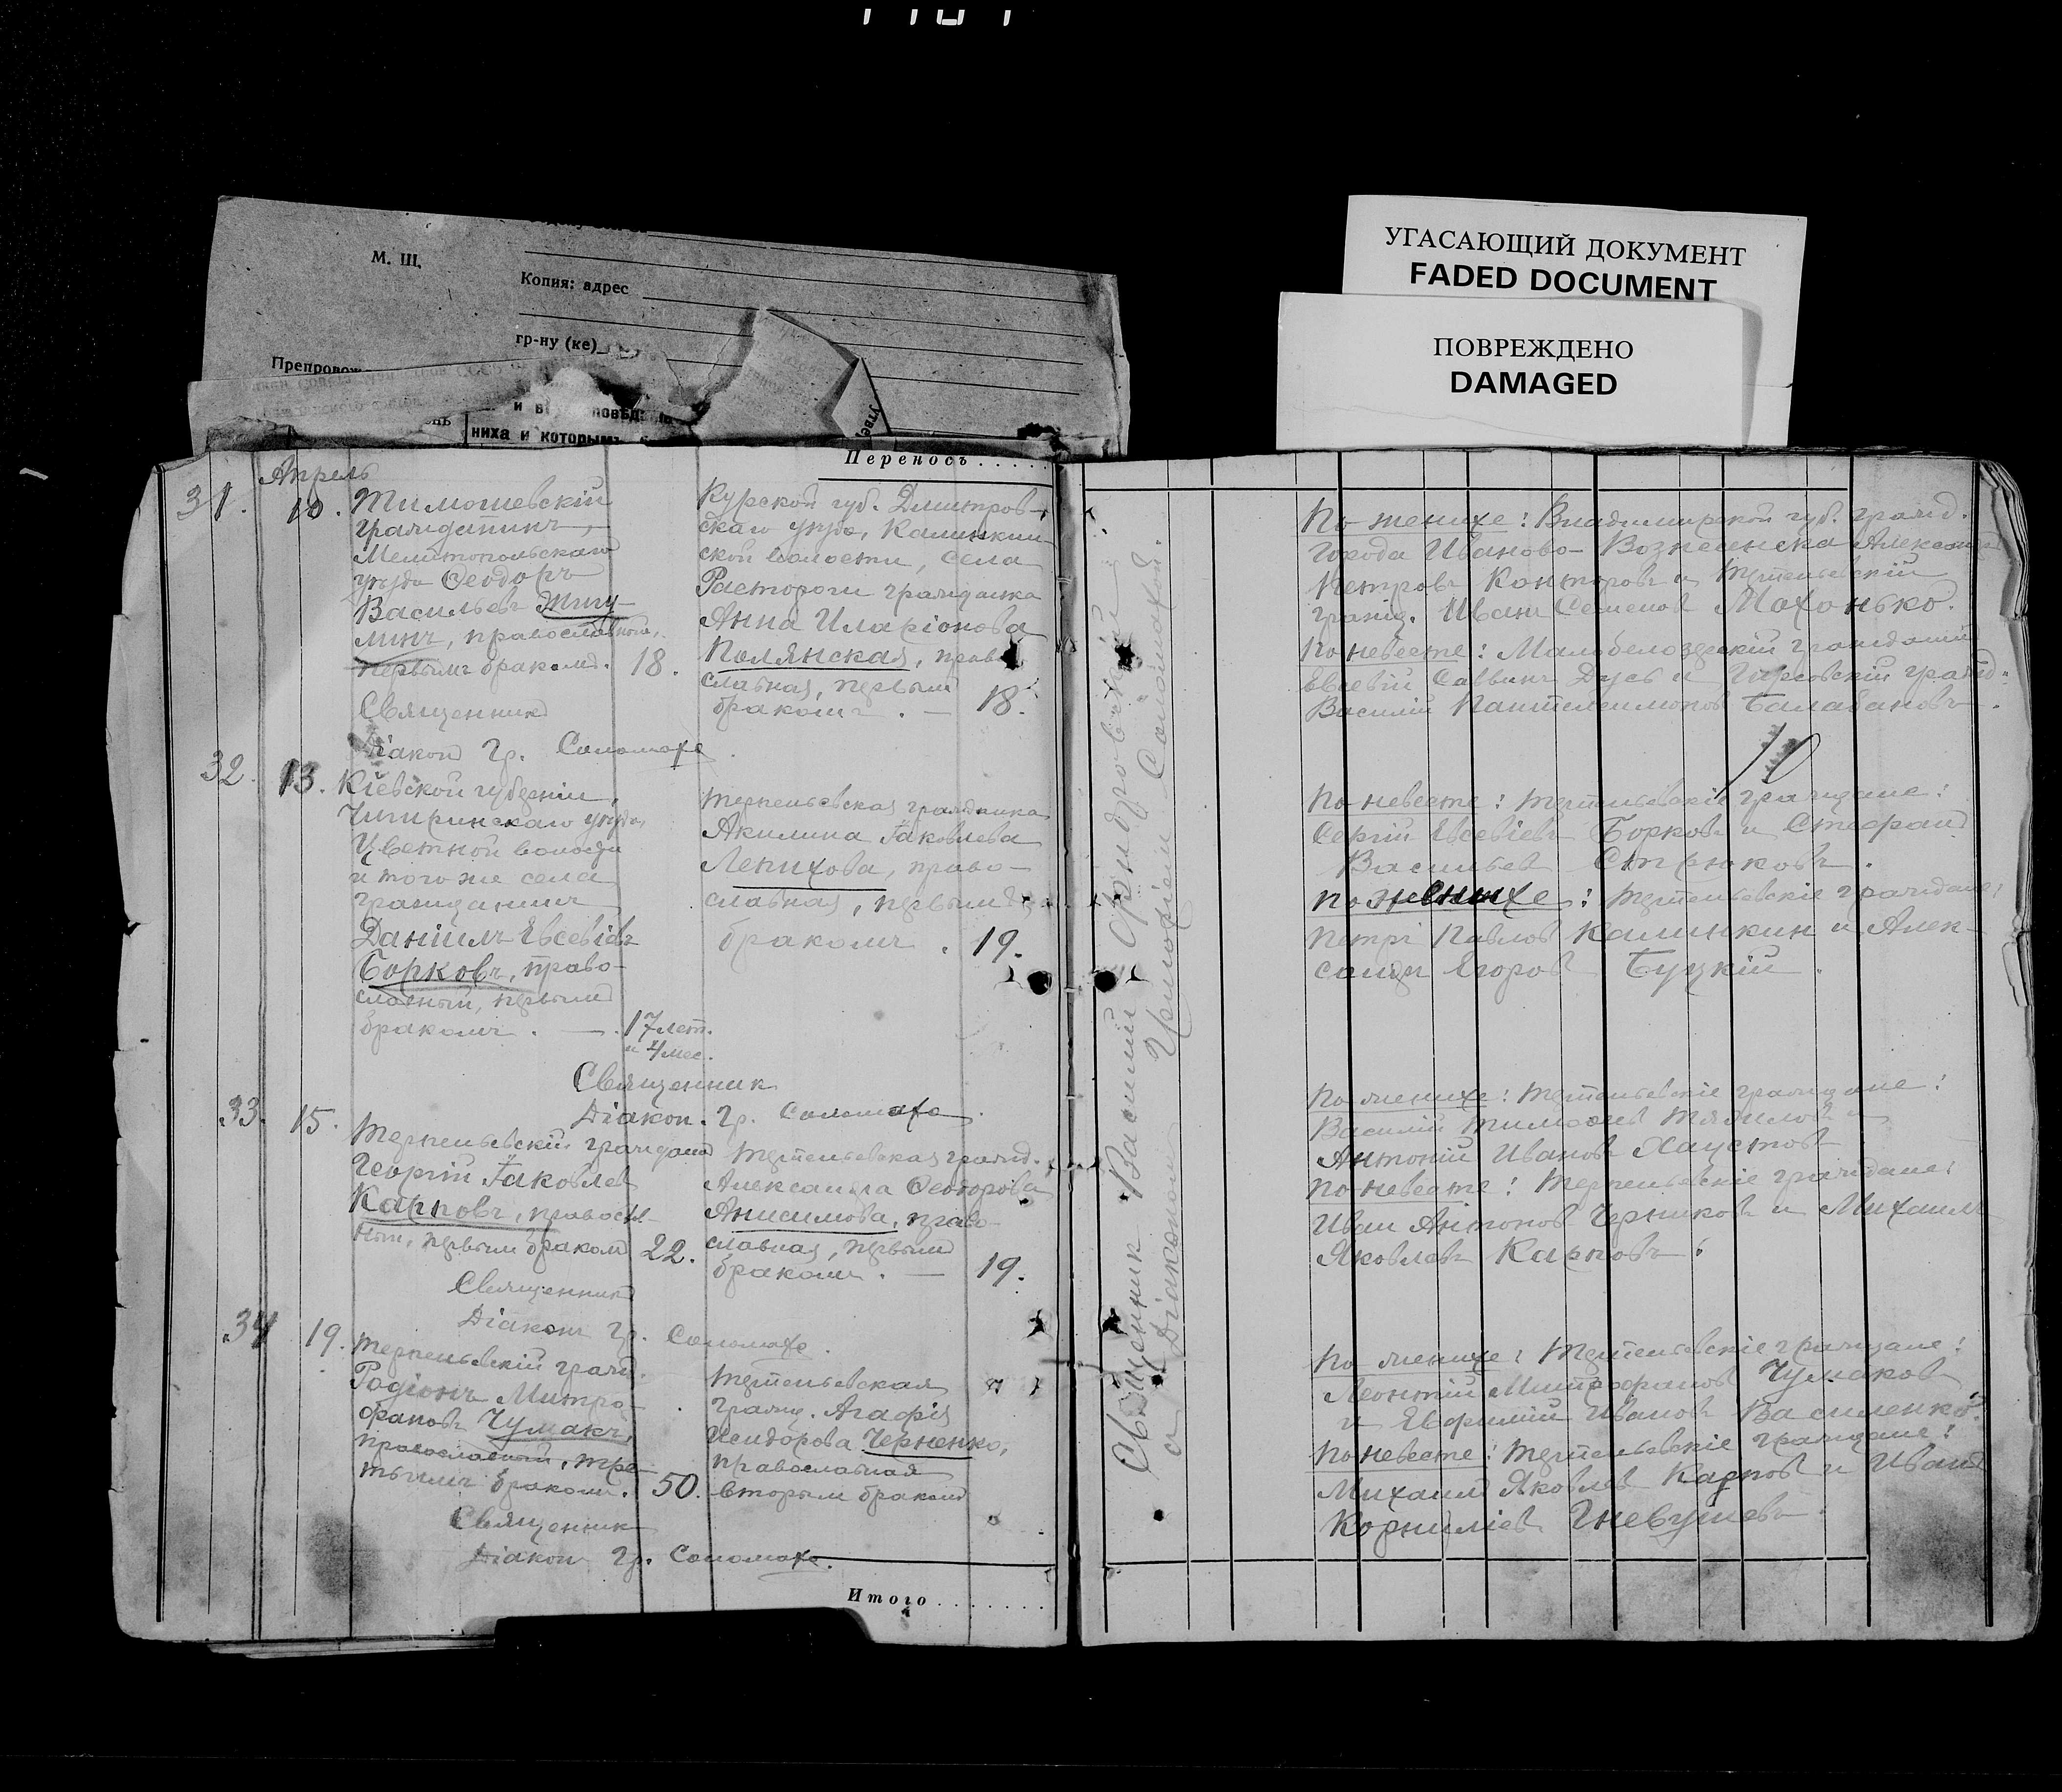 УГАСАЮЩИЙ ДОКУМЕНТ
FADED DOCUMENT
ПОВРЕЖДЕНО
DAMAGED
М. Ш.
Копия: адрес
гр-ну (ке)
Препровож
ниха и которымъ
Переносъ . . . . .
Апрель
31. 10.
Тимошевскій
гражданинъ,
Мелитопольскаго
уѣзда Ѳеодоръ
Васильевъ
православный,
первымъ бракомъ. 18.
Курской губ. Дмитров-
скаго уѣзда,
ской волости, села
гражданка
Анна Иларіонова
Полянская, право-
славная, первым
бракомъ. — 18.
Священник
Діакон Гр. Соломаха.
32. 13.
Кіевской губерніи,
Чигиринскаго уѣзда,
Цветной волости
и того же села
гражданинъ
Даніилъ Евсевіев
Борковъ, право-
славный, первым
бракомъ. — 17 лет.
и 4 мес.
Терпеньевская гражданка
Акилина Іаковлева
Лепихова, право-
славная, первым
бракомъ. 19.
Священник
Діакон. Гр. Соломаха.
33. 15.
Терпеньевскій гражданин
Георгій Іаковлев
Карповъ, правосл-
ный, первым браком 22.
Терпеньевская гражд.
Александра Ѳеодорова
Анисимова, право-
славная, первым
браком. — 19.
Священник
Діаконъ Гр. Соломаха.
34 19.
Терпеньевскій гражд.
Родіонъ Митро-
фановъ Чумакъ,
православный, тре-
тьимъ браком. 50.
Терпеньевская
гражд. Агафія
Исидорова Черненко,
православная
вторым браком
Священник
Діакон Гр. Соломаха.
Итого . . . . . . .
Священник Василий
с Діаконом Соломахой.
По женихе: Владимирской губ. гражд.
города Иваново-Вознесенска Александр
Петровъ и Терпеньевскій
гражд. Иван Семенов Махонько.
По невесте: Малобелозерскій гражданин
Евсевій Саввинъ Дусь и гражд.
Василій Пантелеимонов Балабановъ.
По невесте: Терпеньевскіе граждане:
Сергій Евсевіевъ Борковъ и Стефан
Васильев
по женихе: Терпеньевскіе граждане:
Петръ Павлов Калинкин и Алек-
сандр Егоров Буцкій.
По женихе: Терпеньевскіе граждане:
Василій Тимофеев и
Антоній Иванов Хаустов
по невесте: Терпеньевскіе граждане:
Иван Антонов Черников и Михаилъ
Яковлевъ Карповъ.
По женихе: Терпеньевскіе граждане:
Леонтій Митрофанов Чумаков
и Евфимій Иванов Василенко.
По невесте: Терпеньевскіе граждане:
Михаил Яковлев Карпов и Иван
Корниліев Гневушев.